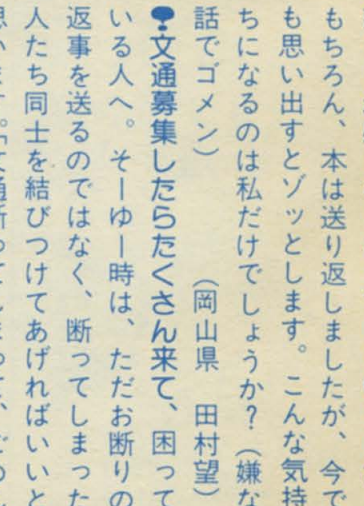 もちろん、本は送り返しましたが、今で
も思い出すとゾッとします。こんな気持
ちになるのは私だけでしょうか？（嫌な
話でゴメン）　　　（岡山県　田村望）
文通募集したらたくさん来て、困って
いる人へ。そーゆー時は、ただお断りの
返事を送るのではなく、断ってしまった
人たち同士を結びつけてあげればいいと